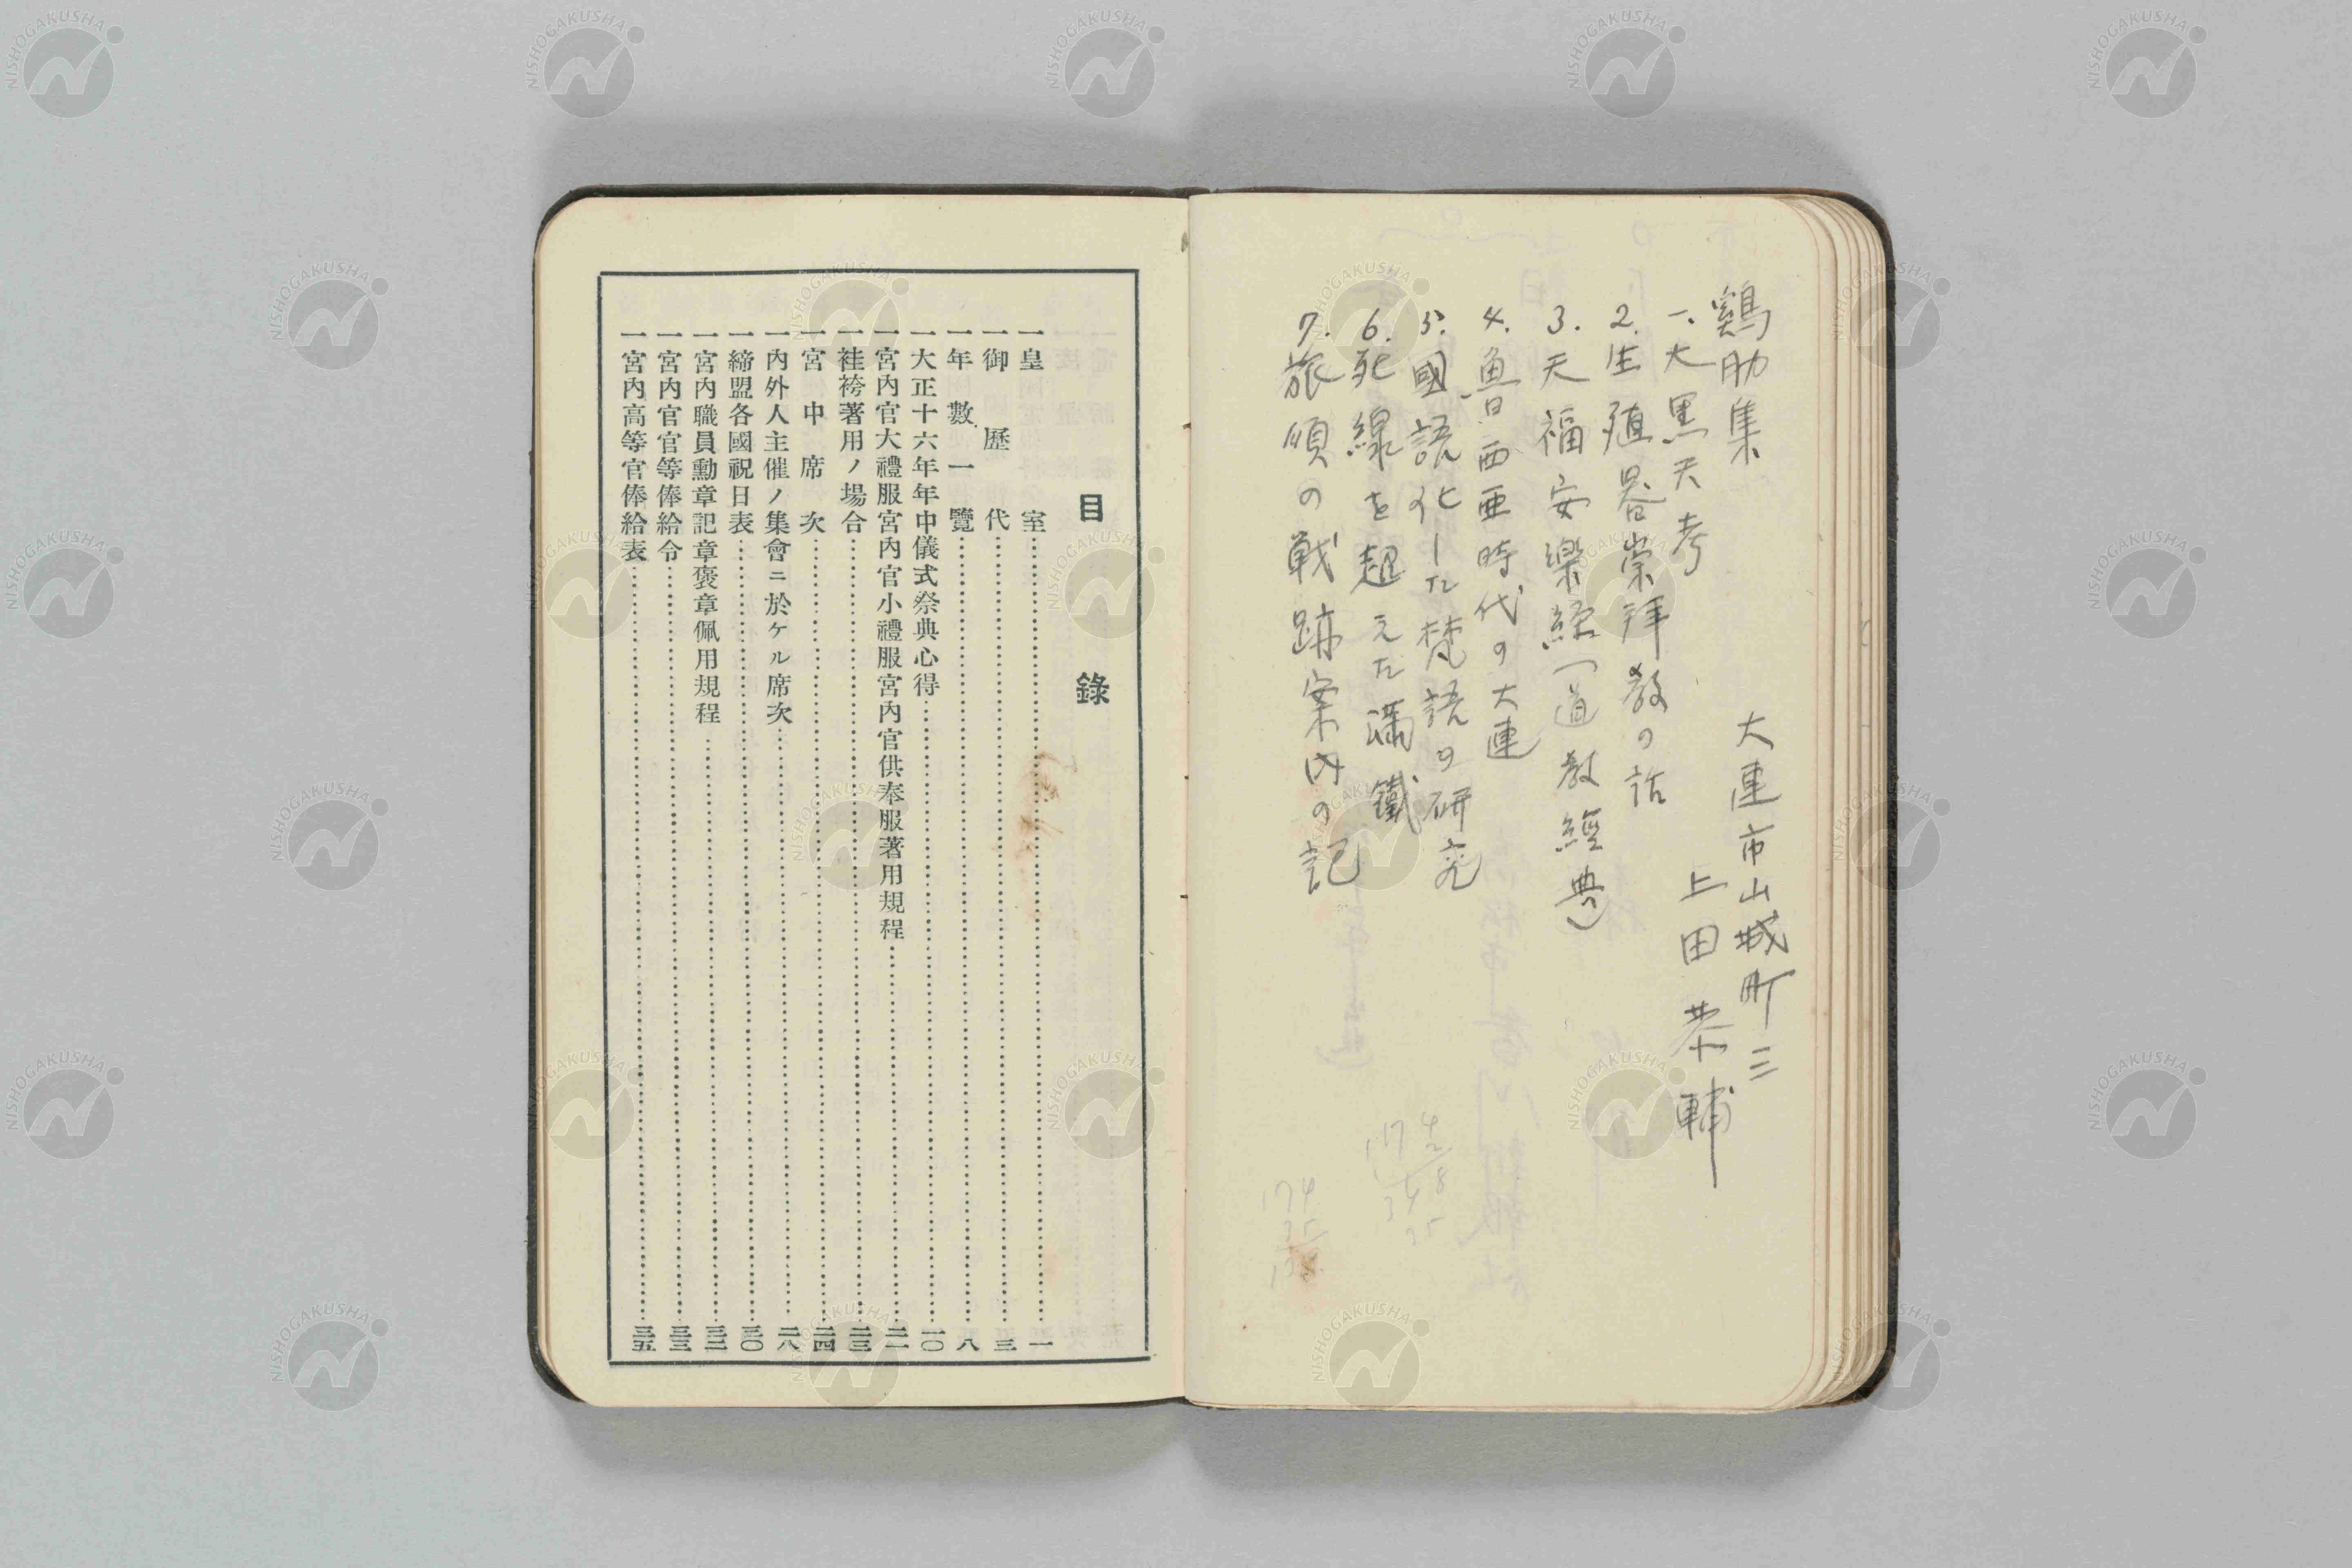 鷄肋集
大連市山城町三
上田恭輔
一.大黒天考
2.生殖器崇拜教の話
3.天福安樂経(道教經典)
4.魯西亜時代の大連
5.國語化した梵語の研究
6.死線を超えた満鐵
7.旅順の戦跡案内の記
174
2
8
348
35
174
35
目錄
一皇室 一
一御歷代 三
一年數一覽 八
一大正十六年年中儀式祭典心得 一〇
一宮內官大禮服宮內官小禮服宮內官供奉服著用規程 二一
一袿袴著用ノ場合 二三
一宮中席次 二四
一內外人主催ノ集會ニ於ケル席次 二八
一締盟各國祝日表 三〇
一宮內職員勳章記章褒章佩用規程 三一
一宮內官官等俸給令 三三
一宮內高等官俸給表 三五
NISHOGAKUSHA